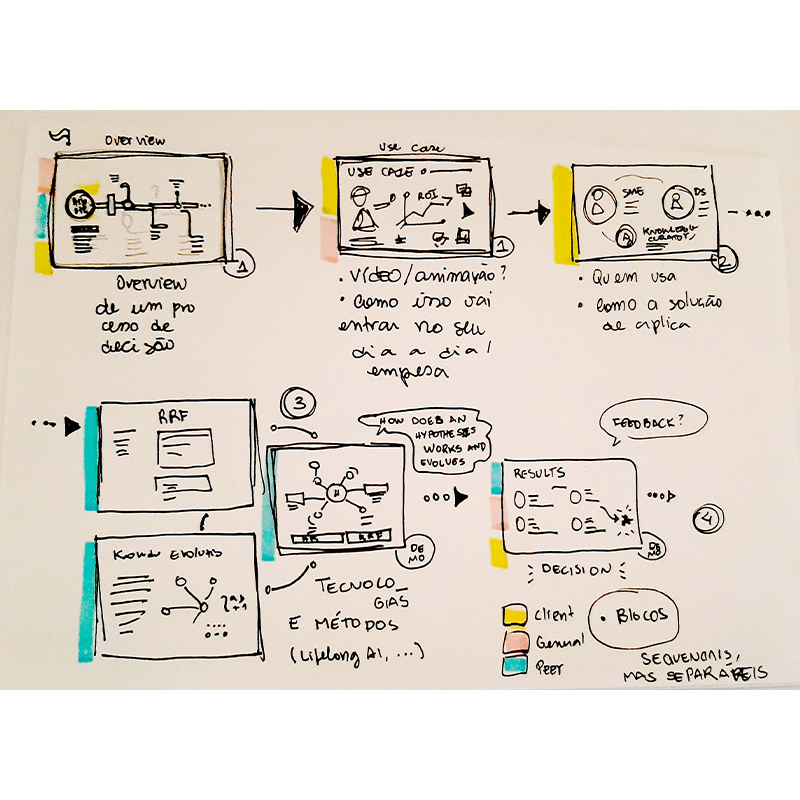 Overview
1
Overview
de um pro
cesso de
decisão
Use Case
USE CASE
ROI
1
• Vídeo/animação?
• Como isso vai
entrar no seu
dia a dia/
empresa
SME
DS
KNOWLEDGE
CURATOR
2
• Quem usa
• Como a solução
se aplica
RRF
3
HOW DOES AN
HYPOTHESIS
WORKS AND
EVOLVES
H
RRF
DE
MO
TECNOLO_
GIAS
E MÉTODOS
(Lifelong AI, ...)
FEEDBACK?
RESULTS
DE
MO
4
DECISION
Client
General
Peer
• BLOCOS
SEQUENCIAIS,
MAS SEPARÁVEIS